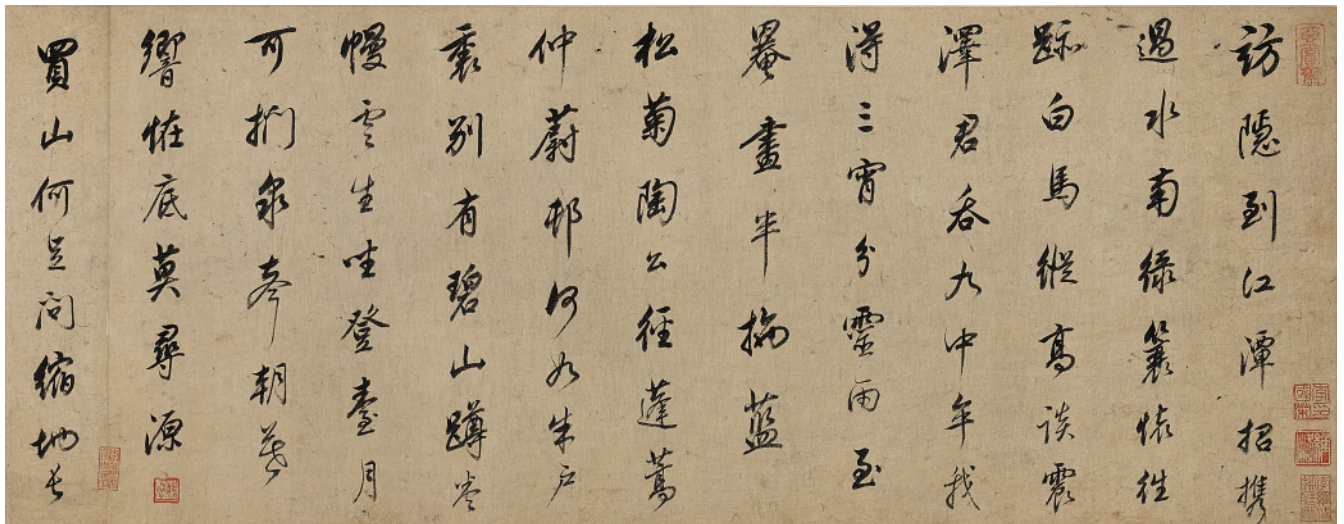 訪隱到江潭招携
過水南綠蓑懷往
跡白馬縱高談震
澤君吞九中年我
得三宵分靈雨至
罨畫半拖藍
松菊陶公徑蓬蒿
仲蔚邨何如朱戶
裏別有碧山蹲卷
幔雲生坐登臺月
可捫泉奔朝暮
響怪底莫尋源
買山何足問縮地長